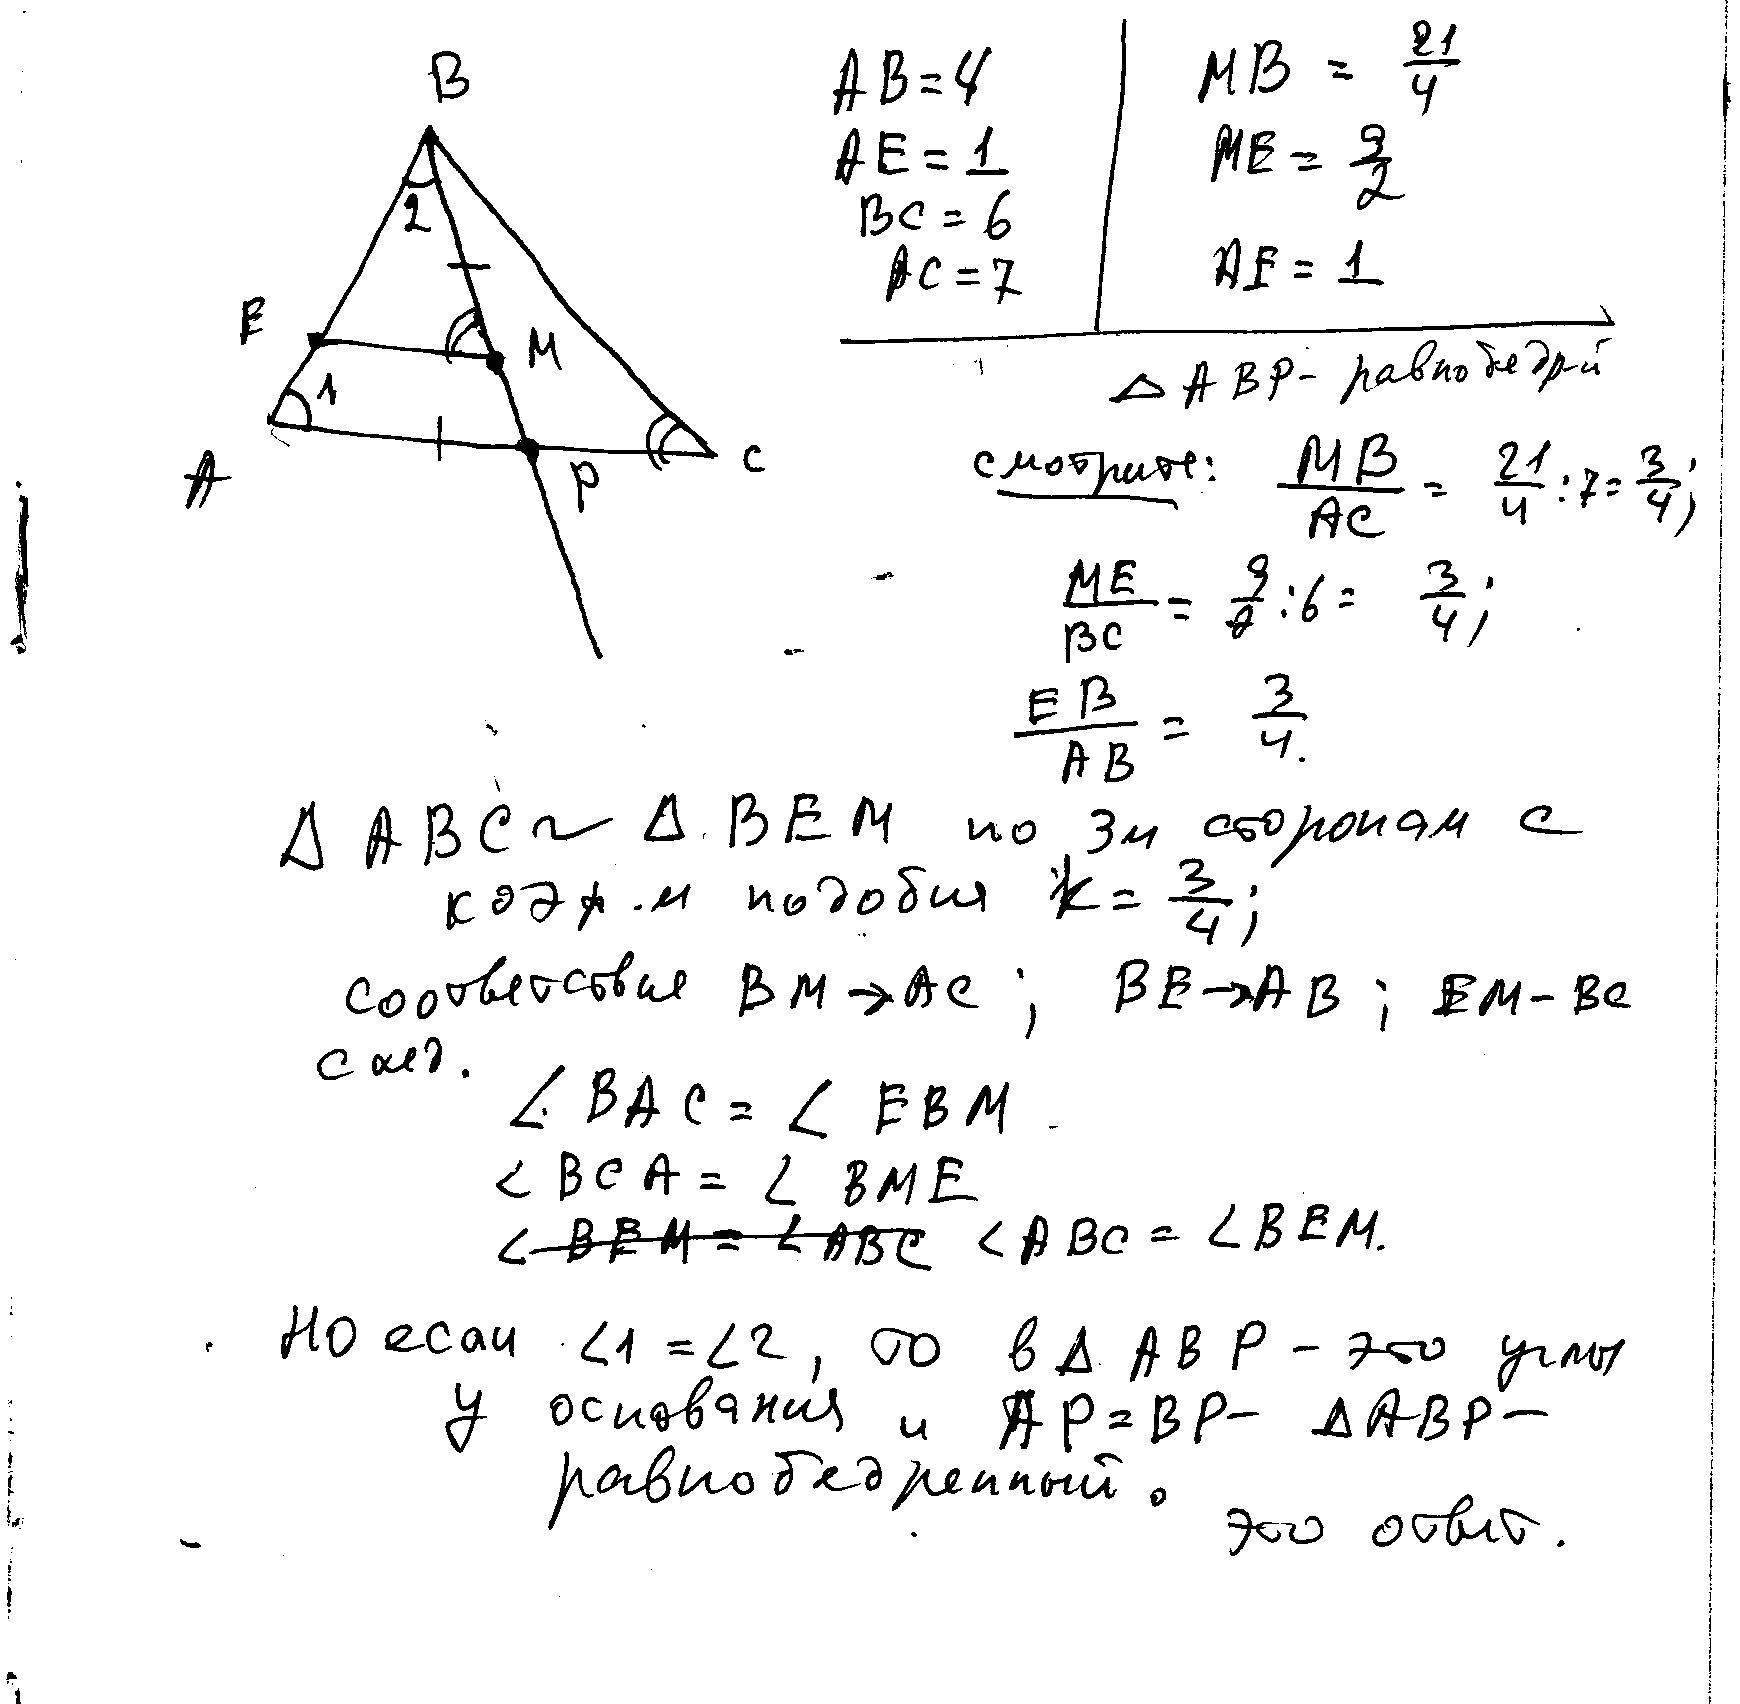 B
2
E
M
1
A
P
C
AB=4
AE=1
BC=6
AC=7
MB = 21/4
ME = 9/2
AE = 1
Δ ABP - равнобедр-й
смотрите: MB/AC = 21/4 : 7 = 3/4;
ME/BC = 9/2 : 6 = 3/4;
EB/AB = 3/4.
Δ ABC ~ Δ BEM по 3м сторонам с
коэф.м подобия k = 3/4;
соответствие BM → AC ; BE → AB ; EM - BC
след.
∠ BAC = ∠ EBM
∠ BCA = ∠ BME
∠ BEM = ∠ ABC ∠ ABC = ∠ BEM.
Но если ∠1 = ∠2, то в Δ ABP - это углы
у основания и AP = BP - Δ ABP -
равнобедренный.
это ответ.